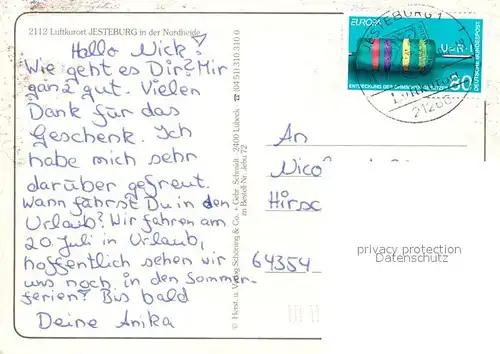 2112 Luftkurort JESTEBURG in der Nordheide
Hallo Nick!
Wie geht es Dir? Mir
ganz gut. Vielen
Dank für das
Geschenk. Ich
habe mich sehr
darüber gefreut.
Wann fährst Du in den
Urlaub? Wir fahren am
20. Juli in Urlaub,
hoffentlich sehen wir
uns noch in den Sommer-
ferien? Bis bald
Deine Anika
© Horst u. Verlag Schöning & Co. + Gebr. Schmidt, 2400 Lübeck, ☎ (04 51) 310 310
m Bestell-Nr. Jebu 72
EUROPA
DEUTSCHE BUNDESPOST
80
JESTEBURG 1
Luftkurort
2126
An
Nico
Hirsc
64354
privacy protection
Datenschutz